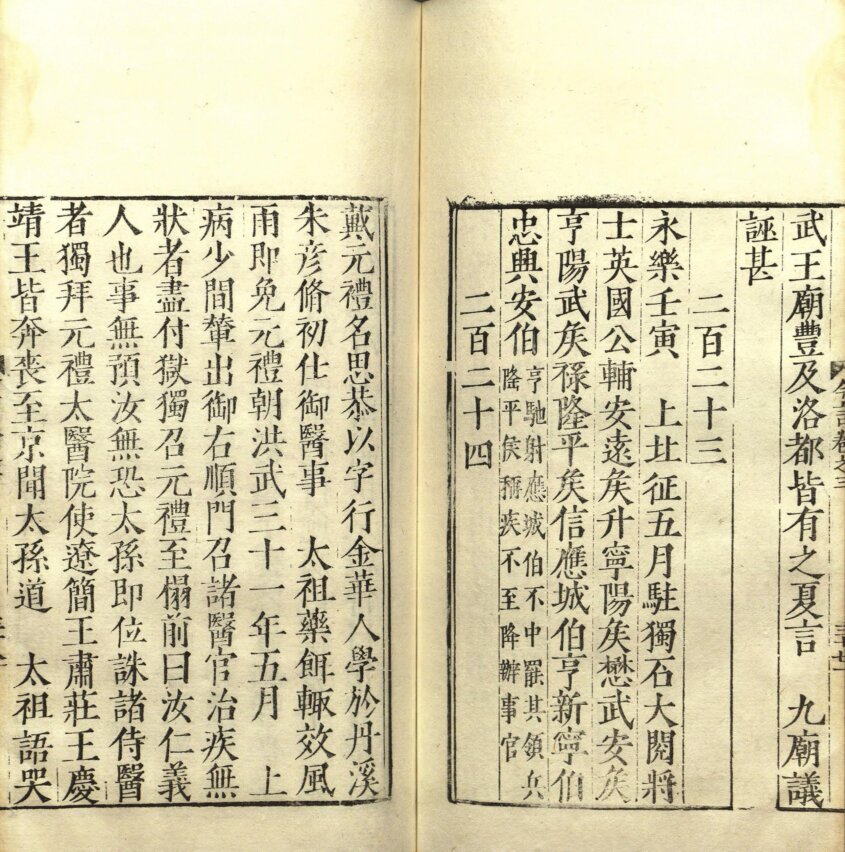 武王廟豐及洛都皆有之夏言　九廟議
誣甚
二百二十三
永樂壬寅　上北征五月駐獨石大閱將
士英國公輔安遠矦升寧陽矦懋武安矦
亨陽武矦祿隆平矦信應城伯亨新寧伯
忠興安伯
亨馳射應城伯不中罷其領兵
隆平侯稱疾不至降辦事官
二百二十四
戴元禮名思恭以字行金華人學於丹溪
朱彥脩初仕御醫事　太祖藥餌輙效風
雨即免元禮朝洪武三十一年五月　上
病少間輦出御右順門召諸醫官治疾無
狀者盡付獄獨召元禮至榻前曰汝仁義
人也事無預汝無恐太孫即位誅諸侍醫
者獨拜元禮太醫院使遼簡王肅莊王慶
靖王皆奔喪至京聞太孫道　太祖語哭